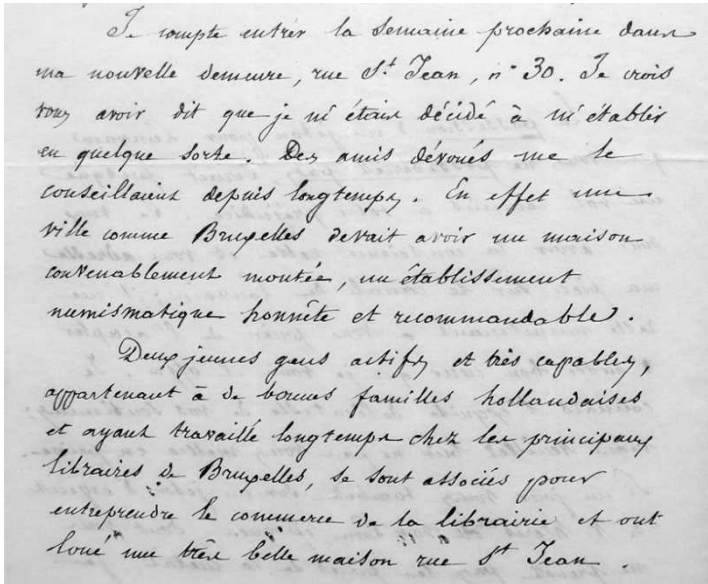 Je compte entrer la semaine prochaine dans
ma nouvelle demeure, rue St Jean, n° 30. Je crois
vous avoir dit que je m'étais décidé à m'établir
en quelque sorte. Des amis dévoués me le
conseillaient depuis longtemps. En effet une
ville comme Bruxelles devait avoir un maison
convenablement montée, un établissement
numismatique honnête et recommandable.
Deux jeunes gens actifs et très capables,
appartenant à de bonnes familles hollandaises
et ayant travaillé longtemps chez les principaux
libraires de Bruxelles, se sont associés pour
entreprendre le commerce de la librairie et ont
loué une très belle maison rue St Jean.